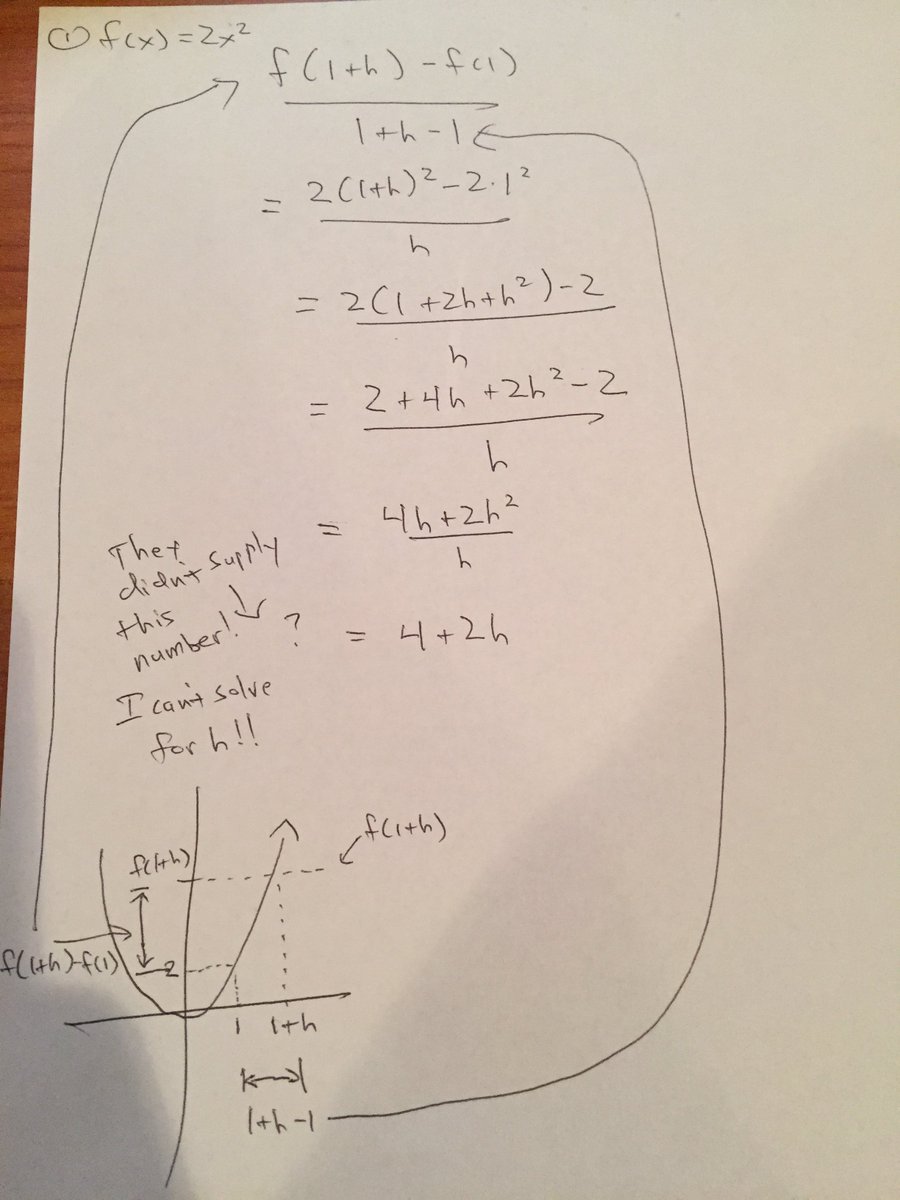 ① f(x) = 2x²
f(1+h) - f(1)
1+h-1
= 2(1+h)² - 2·1²
h
= 2(1+2h+h²) - 2
h
= 2+4h+2h²-2
h
= 4h+2h²
h
They
didn't supply
this
number!
? = 4+2h
I can't solve
for h!!
f(1+h)
f(1+h)
f(1+h)-f(1)
2
1 1+h
1+h-1